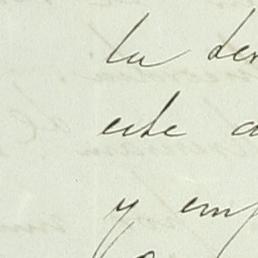 la de
este a
y em